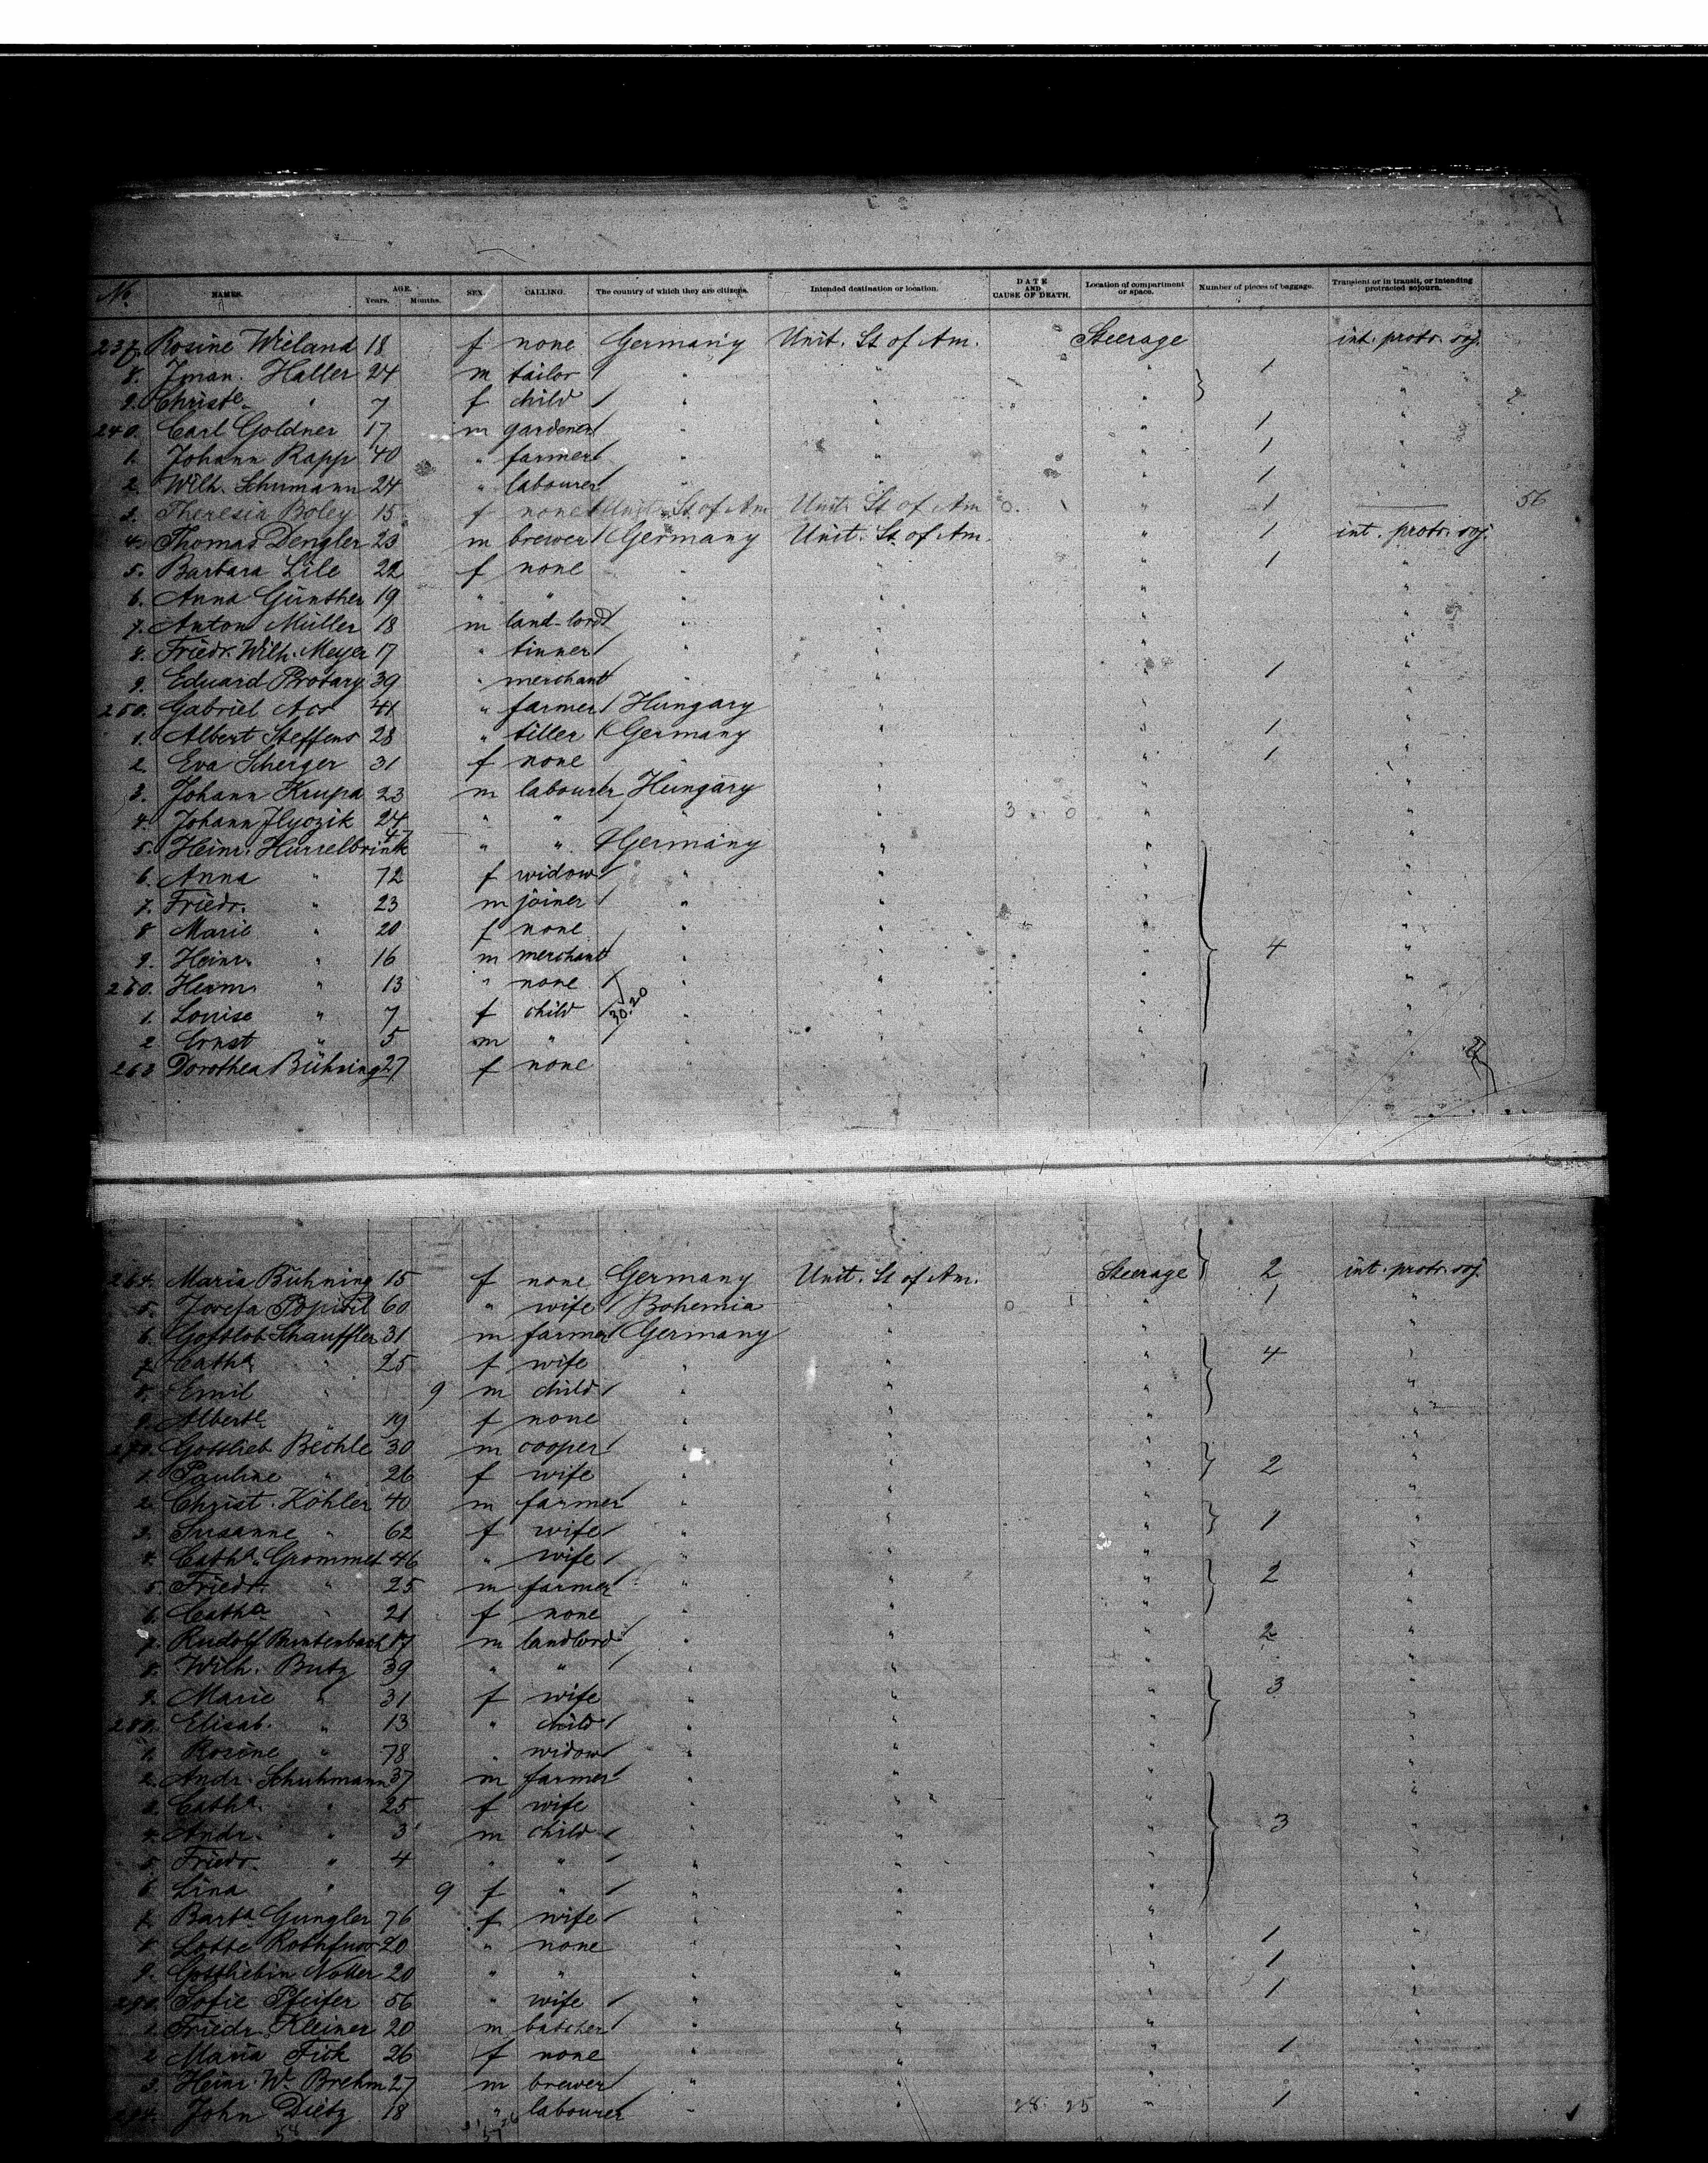 No. NAMES. AGE. Years. Months. SEX. CALLING. The country of which they are citizens. Intended destination or location. DATE AND CAUSE OF DEATH. Location of compartment or space. Number of pieces of baggage. Transient or in transit, or intending protracted sojourn.
237. Rosine Wieland 18 f none Germany Unit. St of Am. Steerage int. protr. soj.
8. Iman. Haller 24 m tailor " " " 1 "
9. Christe " 7 f child " " " "
240. Carl Goldner 17 m gardener " " " 1 "
1. Johann Rapp 40 " farmer " " " 1 "
2. Wilh. Schumann 24 " labourer " " " 1 "
3. Theresia Boley 15 f none Unit. St of Am Unit. St of Am " 1 — 56
4. Thomas Dengler 23 m brewer Germany Unit. St. of Am. " 1 int. protr. soj.
5. Barbara Lile 22 f none " " " 1 "
6. Anna Günther 19 " " " " " "
7. Anton Müller 18 m land-lord " " " "
8. Friedr. Wilh. Meyer 17 " tinner " " " "
9. Eduard Brotary 39 " merchant " " " 1 "
250. Gabriel 41 " farmer Hungary " " "
1. Albert Steffens 28 " tiller Germany " " 1 "
2. Eva Scherger 31 f none " " " 1 "
3. Johann Krupa 23 m labourer Hungary " " "
4. Johann 24 " " " " " "
5. Heinr. Hurrelbrink 47 " " Germany " " "
6. Anna " 72 f widow " " " "
7. Friedr. " 23 m joiner " " " "
8 Marie " 20 f none " " " "
9. Heinr. " 16 m merchant " " " 4 "
260. Herm. " 13 " none " " " "
1. Louise " 7 f child 30.20 " " " "
2 Ernst " 5 m " " " " "
263 Dorothea Bühning 27 f none "
264. Maria Bühning 15 f none Germany Unit. St of Am. Steerage 2 int. protr. soj.
5. Josefa Popisil 60 " wife Bohemia " " 1 "
6. Gottlob Schauffler 31 m farmer Germany " " "
7. Catha " 25 f wife " " " 4 "
8. Emil " 9 m child " " " "
9. Alberte " 19 f none " " " "
270. Gottlieb Bechle 30 m cooper " " " "
1. Pauline " 26 f wife " " " 2 "
2. Christ. Köhler 40 m farmer " " " "
3. Susanne " 62 f wife " " " 1 "
4. Catha. Grommet 46 " wife " " " "
5. Friedr. " 25 m farmer " " " 2 "
6. Catha " 21 f none " " " "
7. Rudolf 17 m landlord " " " 2 "
8. Wilh. Butz 39 " " " " " "
9. Marie " 31 f wife " " " 3 "
280. Elisab. " 13 " child " " " "
1. Rosine " 78 " widow " " " "
2. Andr. Schuhmann 37 m farmer " " " "
3. Catha. " 25 f wife " " " "
4. Andr. " 3 m child " " " 3 "
5. Friedr. " 4 " " " " " "
6. Lina " 9 f " " " " "
7. Barba Gungler 76 f wife " " " "
8. Lotte Rothfuss 20 " none " " " 1 "
9. Gottliebin Noller 20 " " " " " 1 "
290. Sofie Pfeifer 56 " wife " " " 1 "
1. Friedr. Kleiner 20 m butcher " " " "
2 Maria Fick 26 f none " " " 1 "
3. Heinr. W. Brehm 27 m brewer " " " "
294. John Dietz 18 " labourer " " 28 25 " 1 "